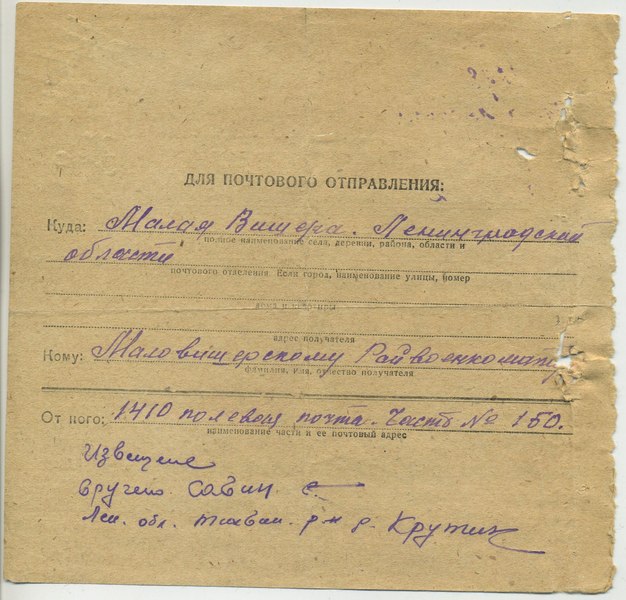 ДЛЯ ПОЧТОВОГО ОТПРАВЛЕНИЯ:
Куда: Малая Вишера. Ленинградской
полное наименование села, деревни, района, области и
области
почтового отделения. Если город, наименование улицы, номер
дома и квартиры
адрес получателя
Кому: Маловишерскому Райвоенкомату
фамилия, имя, отчество получателя
От кого: 1410 полевая почта. Часть № 150.
наименование части и ее почтовый адрес
Извещение
вручено. Савин.
Лен. обл. р-н д. Крутик